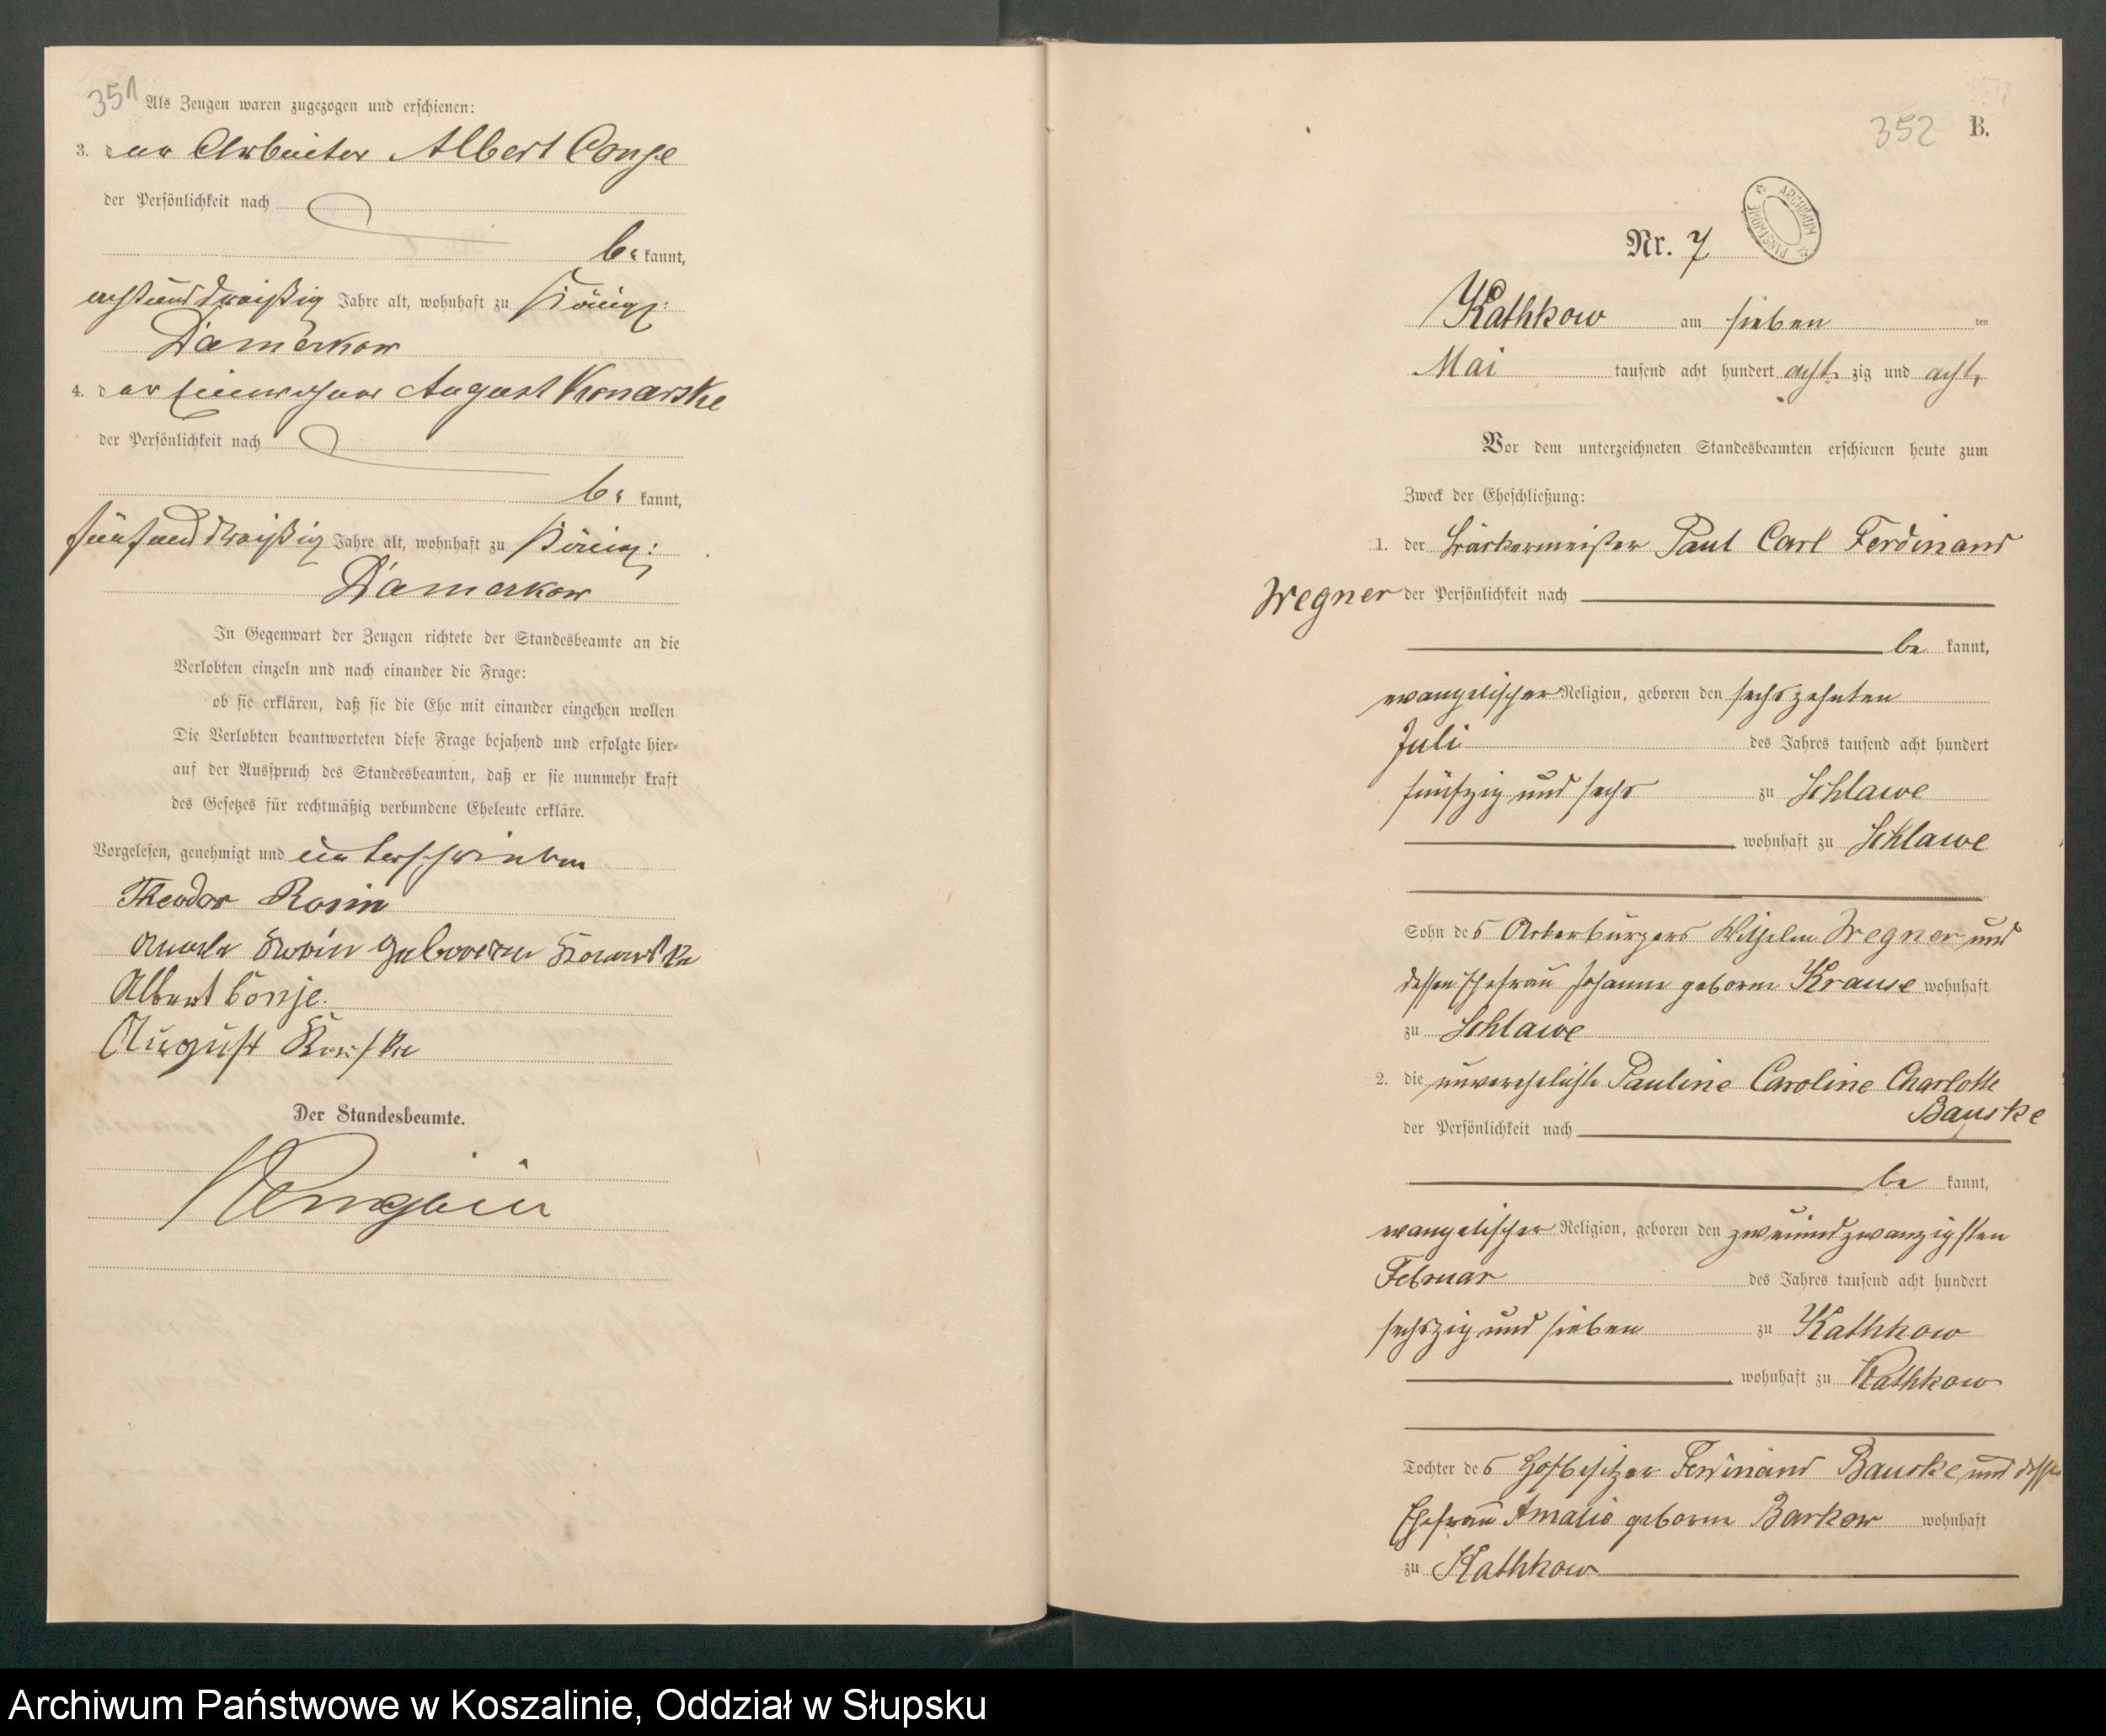 351
Als Zeugen waren zugezogen und erschienen:
3. der Arbeiter Albert Conje
der Persönlichkeit nach
be kannt,
achtunddreißig Jahre alt, wohnhaft zu Königl:
Damerkow
4. der Einwohner August Konarske
der Persönlichkeit nach
be kannt,
fünfunddreißig Jahre alt, wohnhaft zu Königl:
Damerkow
In Gegenwart der Zeugen richtete der Standesbeamte an die
Verlobten einzeln und nach einander die Frage:
ob sie erklären, daß sie die Ehe mit einander eingehen wollen
Die Verlobten beantworteten diese Frage bejahend und erfolgte hier-
auf der Ausspruch des Standesbeamten, daß er sie nunmehr kraft
des Gesetzes für rechtmäßig verbundene Eheleute erkläre.
Vorgelesen, genehmigt und unterschrieben
Theodor Rosin
geborene
Albert Conje.
August
Der Standesbeamte.
352 B.
ARCHIWUM PAŃSTWOWE
Nr. 7
Kathkow am sieben ten
Mai tausend acht hundert acht zig und acht
Vor dem unterzeichneten Standesbeamten erschienen heute zum
Zweck der Eheschließung:
1. der Bäckermeister Paul Carl Ferdinand
Wegner der Persönlichkeit nach
be kannt,
evangelischer Religion, geboren den sechszehnten
Juli des Jahres tausend acht hundert
fünfzig und sechs zu Schlawe
wohnhaft zu Schlawe
Sohn des Ackerbürgers Wilhelm Wegner und
dessen Ehefrau Johanne geborne Krause wohnhaft
zu Schlawe
2. die unverehelichte Pauline Caroline Charlotte
Bauske
der Persönlichkeit nach
be kannt,
evangelischer Religion, geboren den zweiundzwanzigsten
Februar des Jahres tausend acht hundert
sechszig und sieben zu Kathkow
wohnhaft zu Kathkow
Tochter des Hofbesitzer Ferdinand Bauske und dessen
Ehefrau Amalie geborne Barkow wohnhaft
zu Kathkow
Archiwum Państwowe w Koszalinie, Oddział w Słupsku